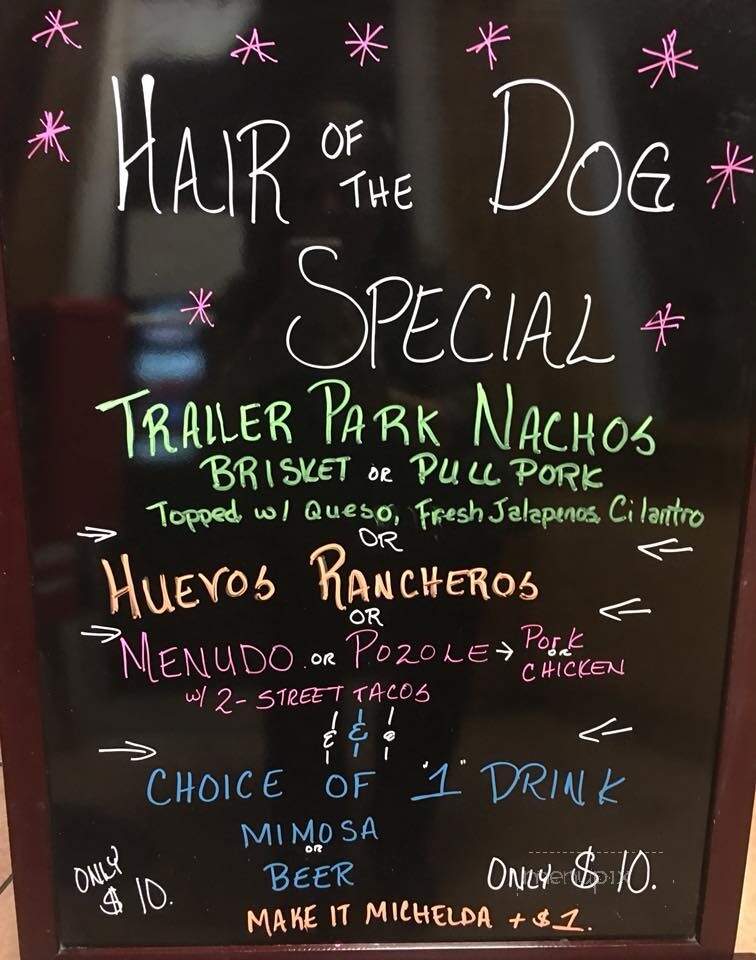 HAIR OF THE DOG
SPECIAL
TRAILER PARK NACHOS
BRISKET OR PULL PORK
Topped w/ Queso, Fresh Jalapenos, Cilantro
OR
HUEVOS RANCHEROS
OR
MENUDO OR POZOLE → Pork OR CHICKEN
w/ 2- STREET TACOS
& & &
CHOICE OF "1" DRINK
MIMOSA
OR
BEER
ONLY $10.
ONLY $10.
menupix
MAKE IT MICHELDA + $1.